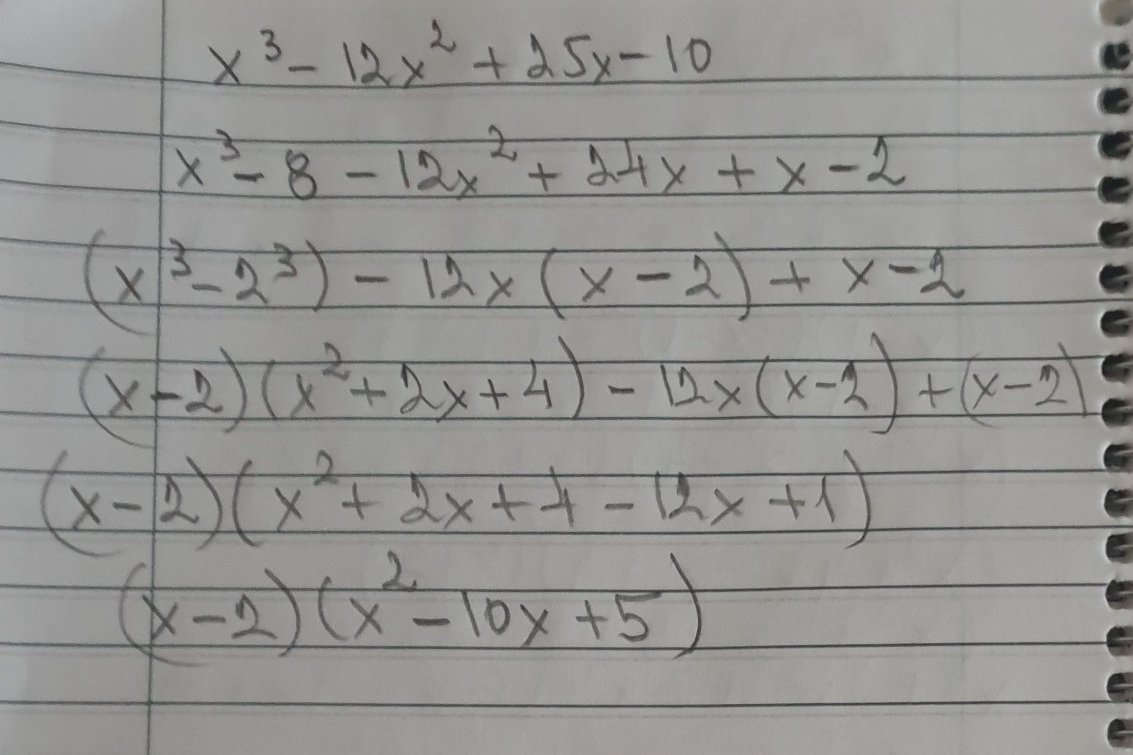 x³ - 12x² + 25x - 10
x³ - 8 - 12x² + 24x + x - 2
(x³ - 2³) - 12x(x - 2) + x - 2
(x - 2)(x² + 2x + 4) - 12x(x - 2) + (x - 2)
(x - 2)(x² + 2x + 4 - 12x + 1)
(x - 2)(x² - 10x + 5)